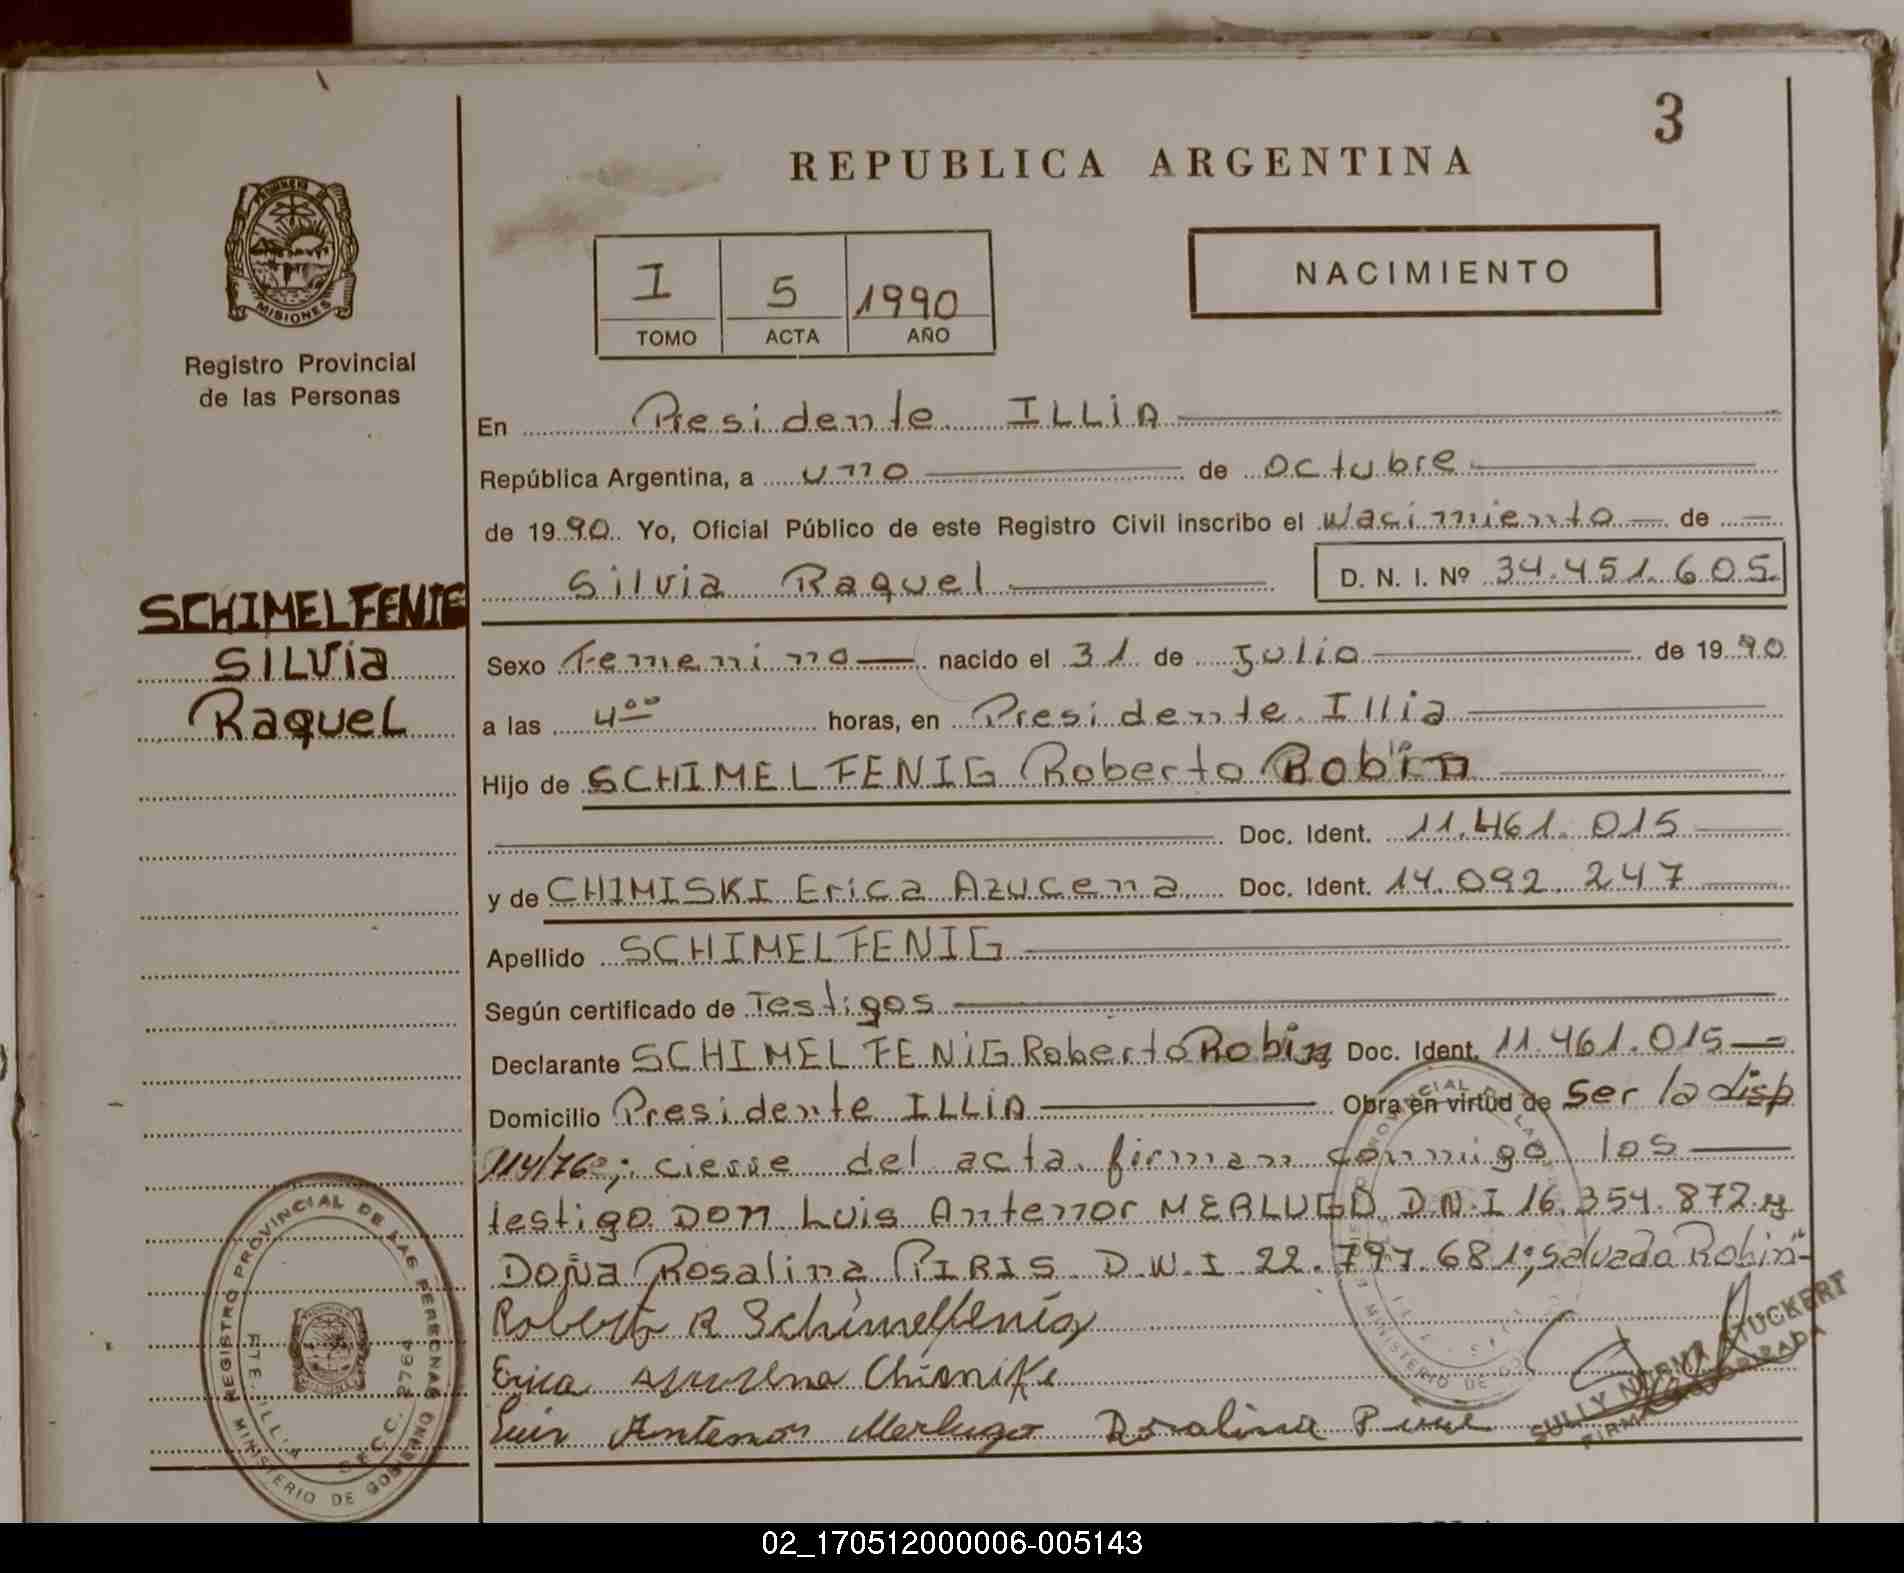 3
REPUBLICA ARGENTINA
MISIONES
Registro Provincial
de las Personas
I 5 1990
TOMO ACTA AÑO
NACIMIENTO
En Presidente ILLiA
República Argentina, a uno de octubre
de 1990. Yo, Oficial Público de este Registro Civil inscribo el Nacimiento de
Silvia Raquel D. N. I. Nº 34.451.605.
SCHIMELFENIG
SILVia
RaqueL
Sexo Femenino nacido el 31 de Julio de 1990
a las 4⁰⁰ horas, en Presidente Illia
Hijo de SCHIMELFENIG Roberto Robin
Doc. Ident. 11.461.015
y de CHIMISKI Erica Azucena Doc. Ident. 14.092.247
Apellido SCHIMELFENIG
Según certificado de Testigos
Declarante SCHIMELFENiG Roberto Robin Doc. Ident. 11.461.015
Domicilio Presidente ILLiA Obra en virtud de Ser la disp
114/76; cierre del acta firman conmigo los
testigo DON Luis Antenor MERLUGO D.N.I 16.354.872 y
DOÑA Rosalina PIRIS D.N.I 22.797.681; salvado "Robin"-
Roberto R Schimelfenig
Erica Azucena
Luis Antenor Merlugo Rosalina
REGISTRO PROVINCIAL DE LAS PERSONAS
MINISTERIO DE GOBIERNO
PTE. ILLIA SECC. 2764
SULLY NORMA STUCKERT
FIRMA AUTORIZADA
02_170512000006-005143